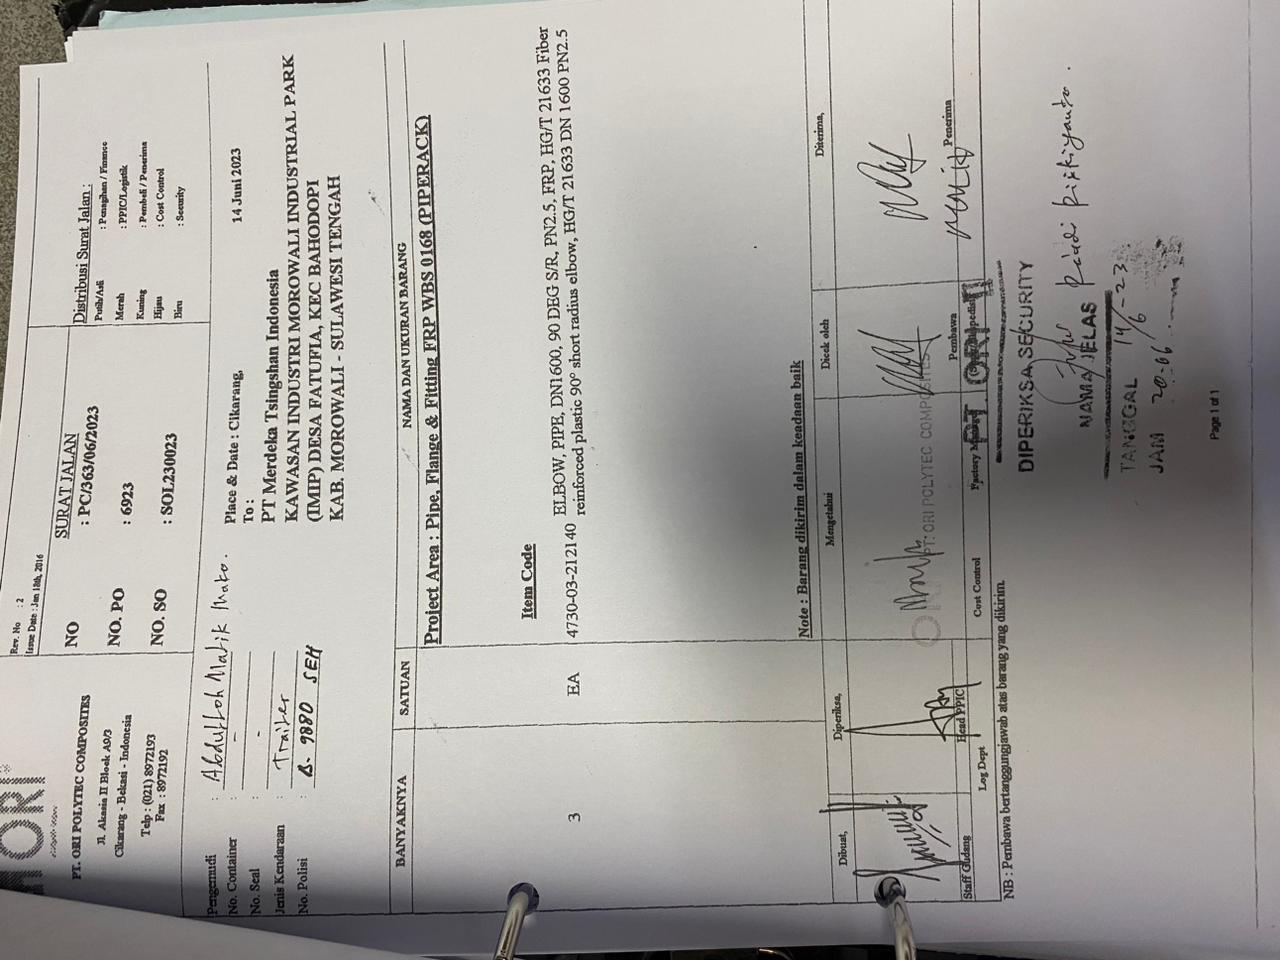 ORI
PT. ORI POLYTEC COMPOSITES
Jl. Akasia II Block A9/3
Cikarang - Bekasi - Indonesia
Telp : (021) 8972193
Fax : 8972192
Rev. No : 2
Issue Date : Jan 18th, 2016
SURAT JALAN
NO : PC/363/06/2023
NO. PO : 6923
NO. SO : SOL230023
Distribusi Surat Jalan :
Putih/Asli : Penagihan / Finance
Merah : PPIC/Logistik
Kuning : Pembeli / Penerima
Hijau : Cost Control
Biru : Security
Pengemudi : Abdulloh Malik Mato.
No. Container : -
No. Seal : -
Jenis Kendaraan : Trailer
No. Polisi : B. 9880 SEH
Place & Date : Cikarang, 14 Juni 2023
To :
PT Merdeka Tsingshan Indonesia
KAWASAN INDUSTRI MOROWALI INDUSTRIAL PARK
(IMIP) DESA FATUFIA, KEC BAHODOPI
KAB. MOROWALI - SULAWESI TENGAH
BANYAKNYA SATUAN NAMA DAN UKURAN BARANG
Project Area : Pipe, Flange & Fitting FRP WBS 0168 (PIPERACK)
Item Code
3 EA 4730-03-212140 ELBOW, PIPE, DN1600, 90 DEG S/R, PN2.5, FRP, HG/T 21633 Fiber
reinforced plastic 90° short radius elbow, HG/T 21633 DN 1600 PN2.5
Note : Barang dikirim dalam keadaan baik
Dibuat, Diperiksa, Mengetahui Dicek oleh Diterima,
PT. ORI POLYTEC COMPOSITES
Staff Gudang Head PPIC Cost Control Factory Pembawa Penerima
Log Dept
PT. ORI
NB : Pembawa bertanggungjawab atas barang yang dikirim.
DIPERIKSA SECURITY
NAMA JELAS Riadi Rizkiyanto.
TANGGAL 14/6-23
JAM 20-06
Page 1 of 1